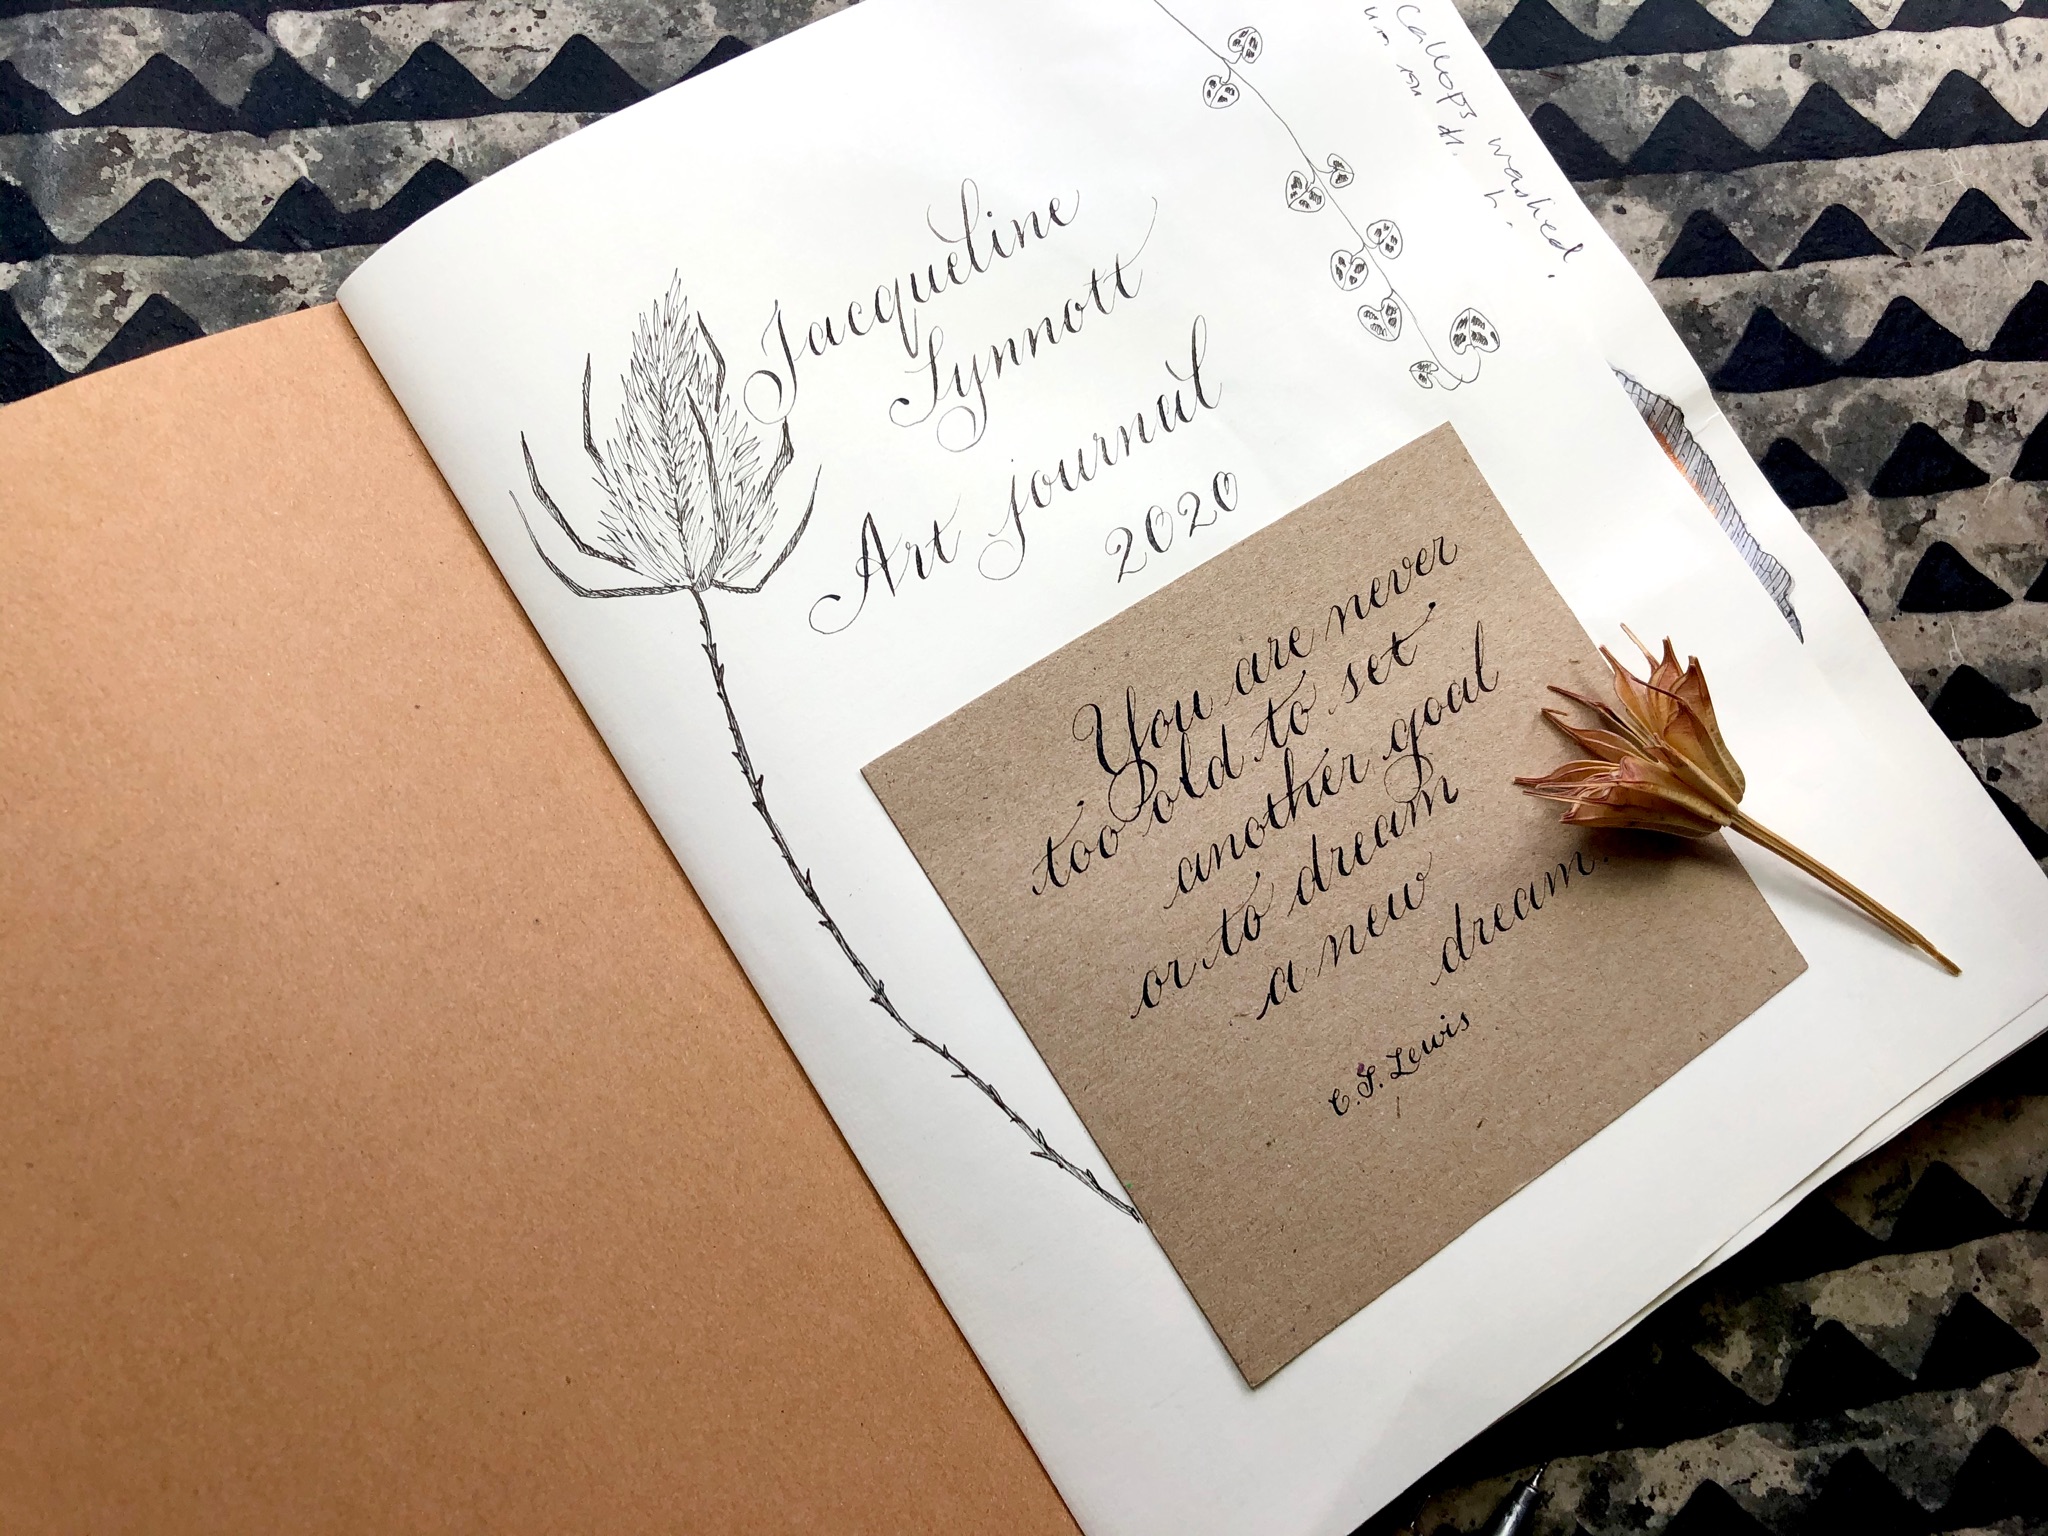 Jacqueline
Synnott
Art journal
2020
You are never
too old to set
another goal
or to dream
a new
dream.
C.S. Lewis
washed.